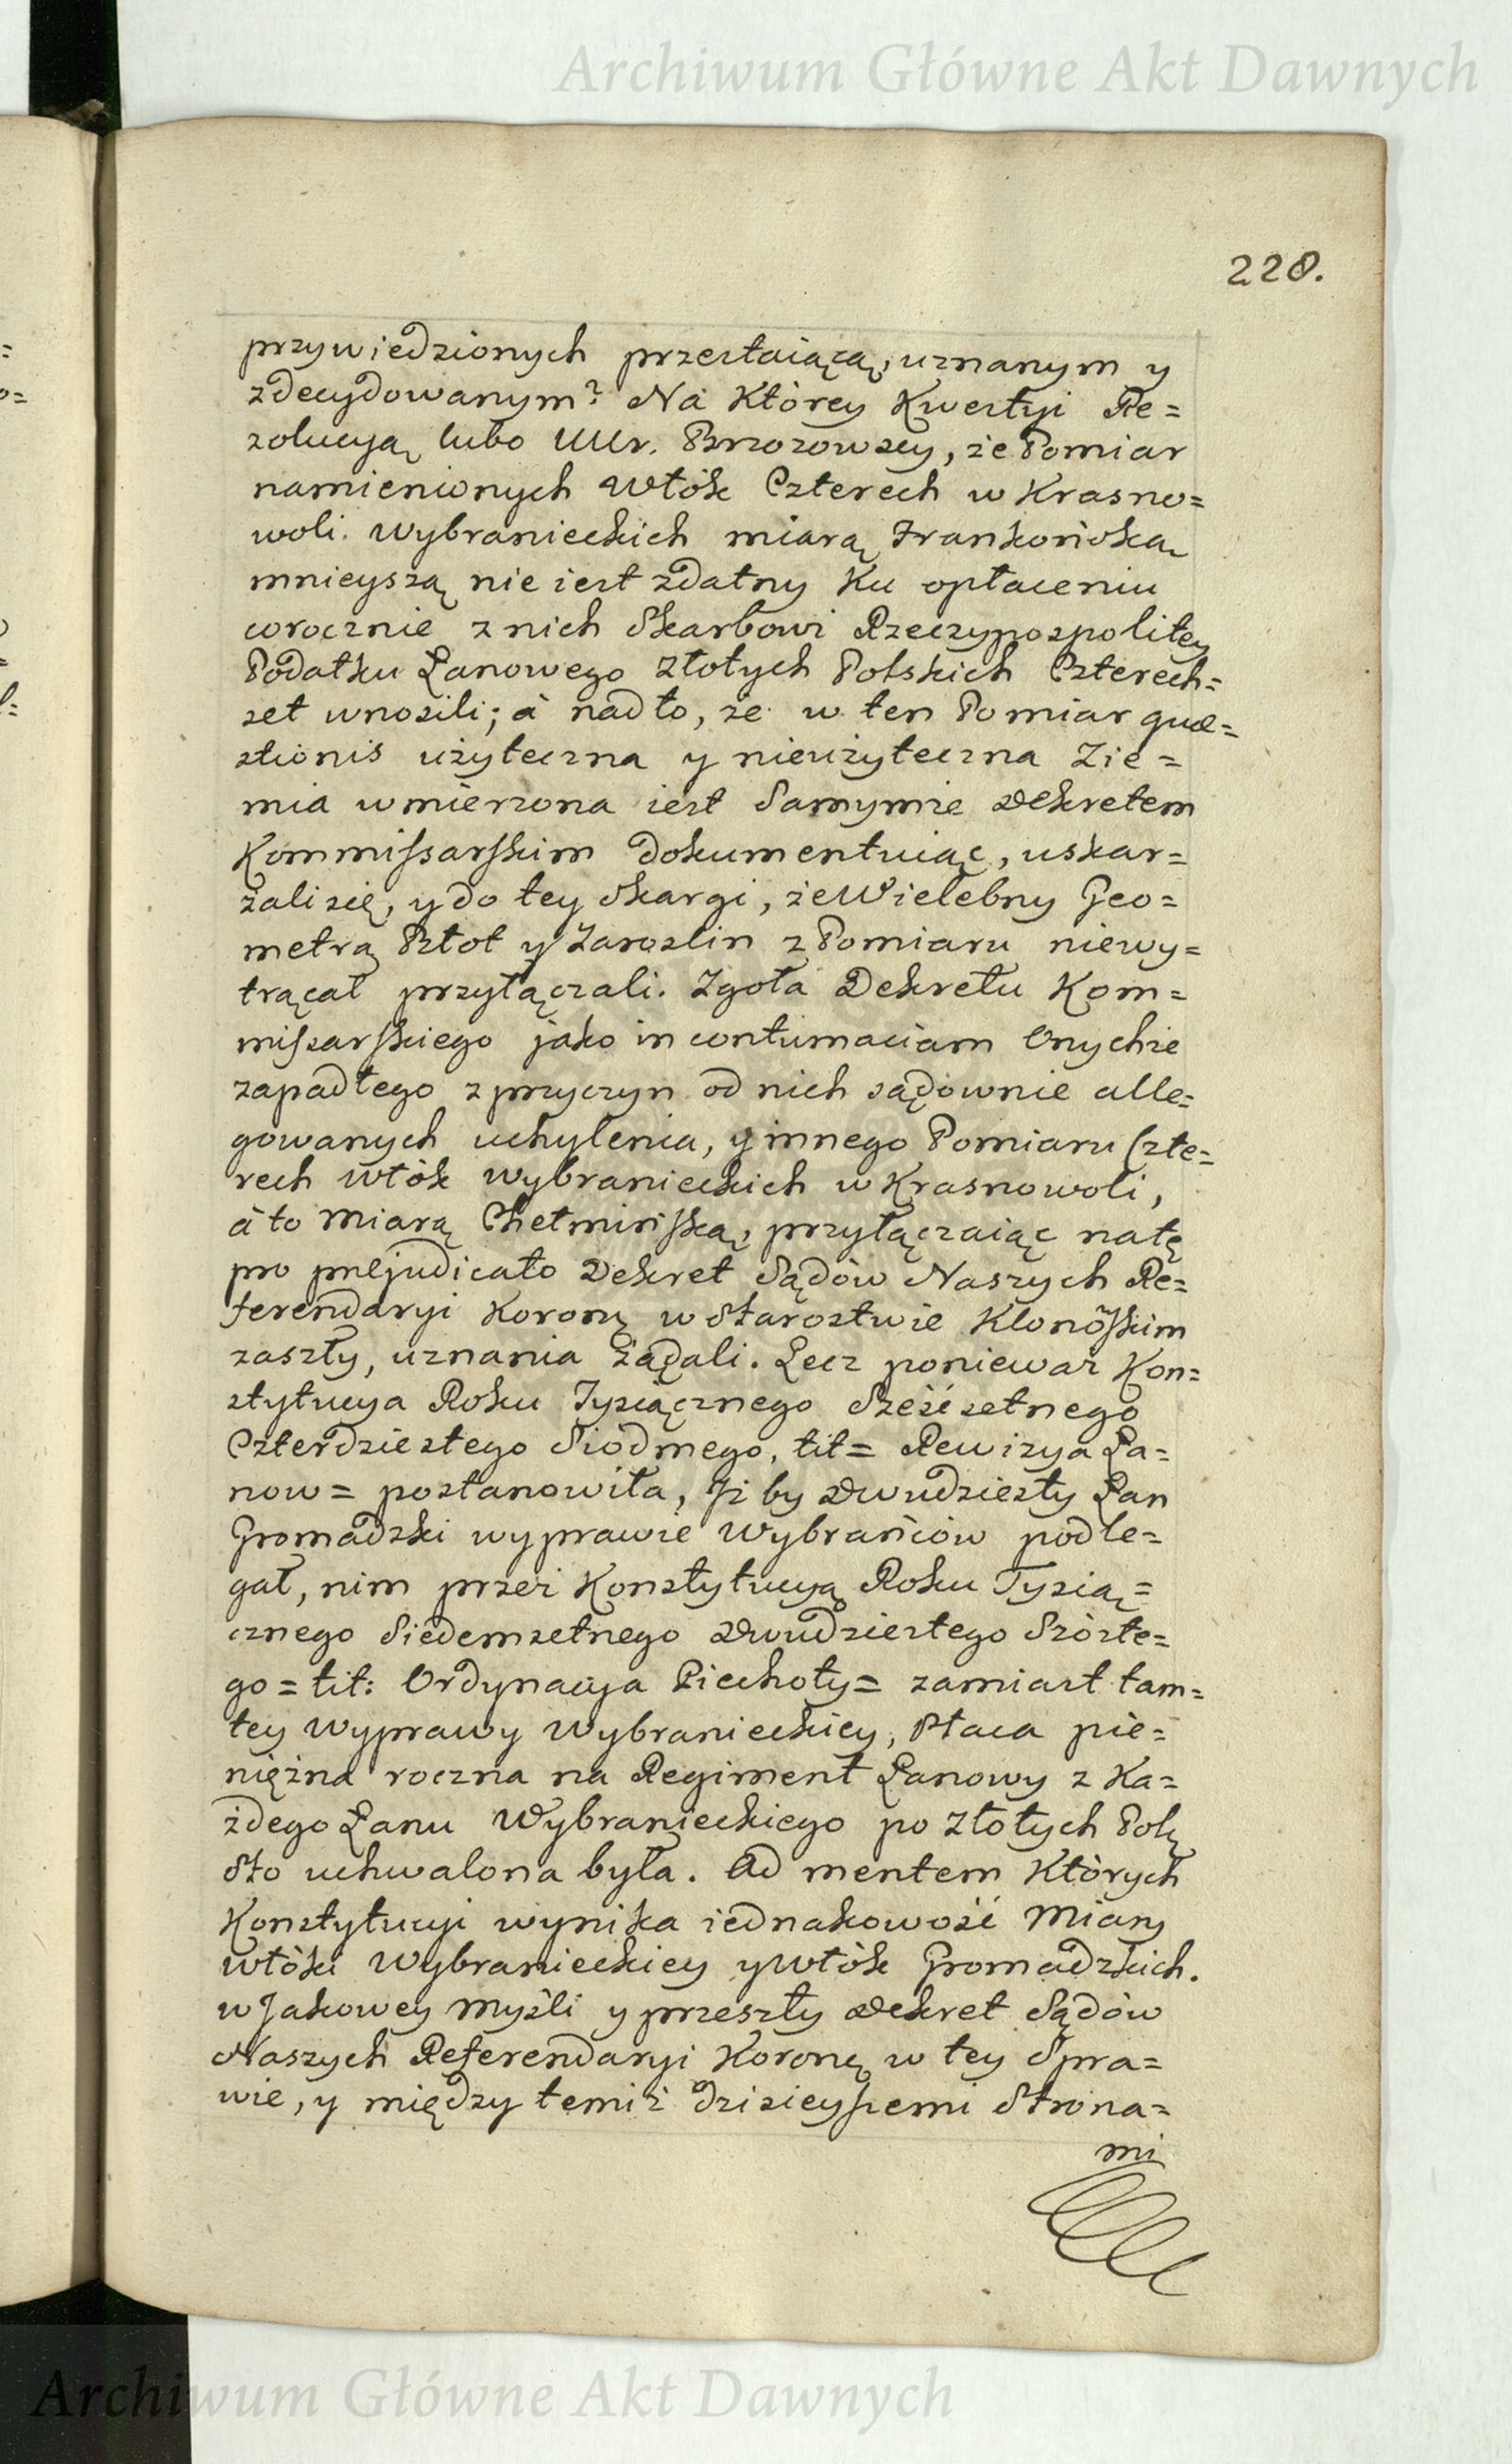 Archiwum Główne Akt Dawnych
228.
przywiedzionych przestaiącą, uznanym y
zdecydowanym? Na Którey Kwestyi Re=
zolucyą lubo UUr. Brzozowscy, że Pomiar
namienionych Włók Czterech w Krasno=
woli. Wybranieckich miarą Frankońską
mnieyszą nie iest zdatny Ku opłaceniu
corocznie z nich Skarbowi Rzeczypospolitey
Podatku Łanowego Złotych Polskich Czterech=
set wnosili; à nadto, że w ten Pomiar quæ=
stionis użyteczna y nieużyteczna Zie=
mia wmierzona iest Samymże Dekretem
Kommissarskim dokumentuiąc, uskar=
żali się, y do tey Skargi, że Wielebny Geo=
metrą Błot y Zaroslin z Pomiaru niewy=
trącał przyłączali. Zgoła Dekretu Kom=
missarskiego jako in contumaciam Onychże
zapadłego z przyczyn od nich sądownie alle=
gowanych uchylenia, y innego Pomiaru Czte=
rech włók wybranieckich w Krasnowoli,
à to Miarą Chełmińską, przyłączaiąc na tę
pro prejudicato Dekret Sądów Naszych Re=
ferendaryi Koronę w Starostwie Klonoskim
zaszły, uznania żądali. Lecz ponieważ Kon=
stytucya Roku Tysiącznego Sześćsetnego
Czterdziestego Siódmego, tit= Rewizya Ła=
now= postanowiła, Jż by Dwudziesty Łan
Gromadzki wyprawie Wybrańców podle=
gał, nim przez Konstytucyą Roku Tysią=
cznego Siedemsetnego Dwudziestego Szóste=
go= tit: Ordynacya Piechoty= zamiast tam=
tey Wyprawy Wybranieckiey, Płaca pie=
niężna roczna na Regiment Łanowy z Ka=
żdego Łanu Wybranieckiego po Złotych Polę
Sto uchwalona była. Ad mentem Których
Konstytucyi wynika iednakowość Miary
włóki Wybranieckiey y włók Gromadzkich.
w Jakowey Myśli y przeszły Dekret Sądów
Naszych Referendaryi Koronę w tey Spra=
wie, y między temiż dzisieyszemi Strona=
mi
Archiwum Główne Akt Dawnych